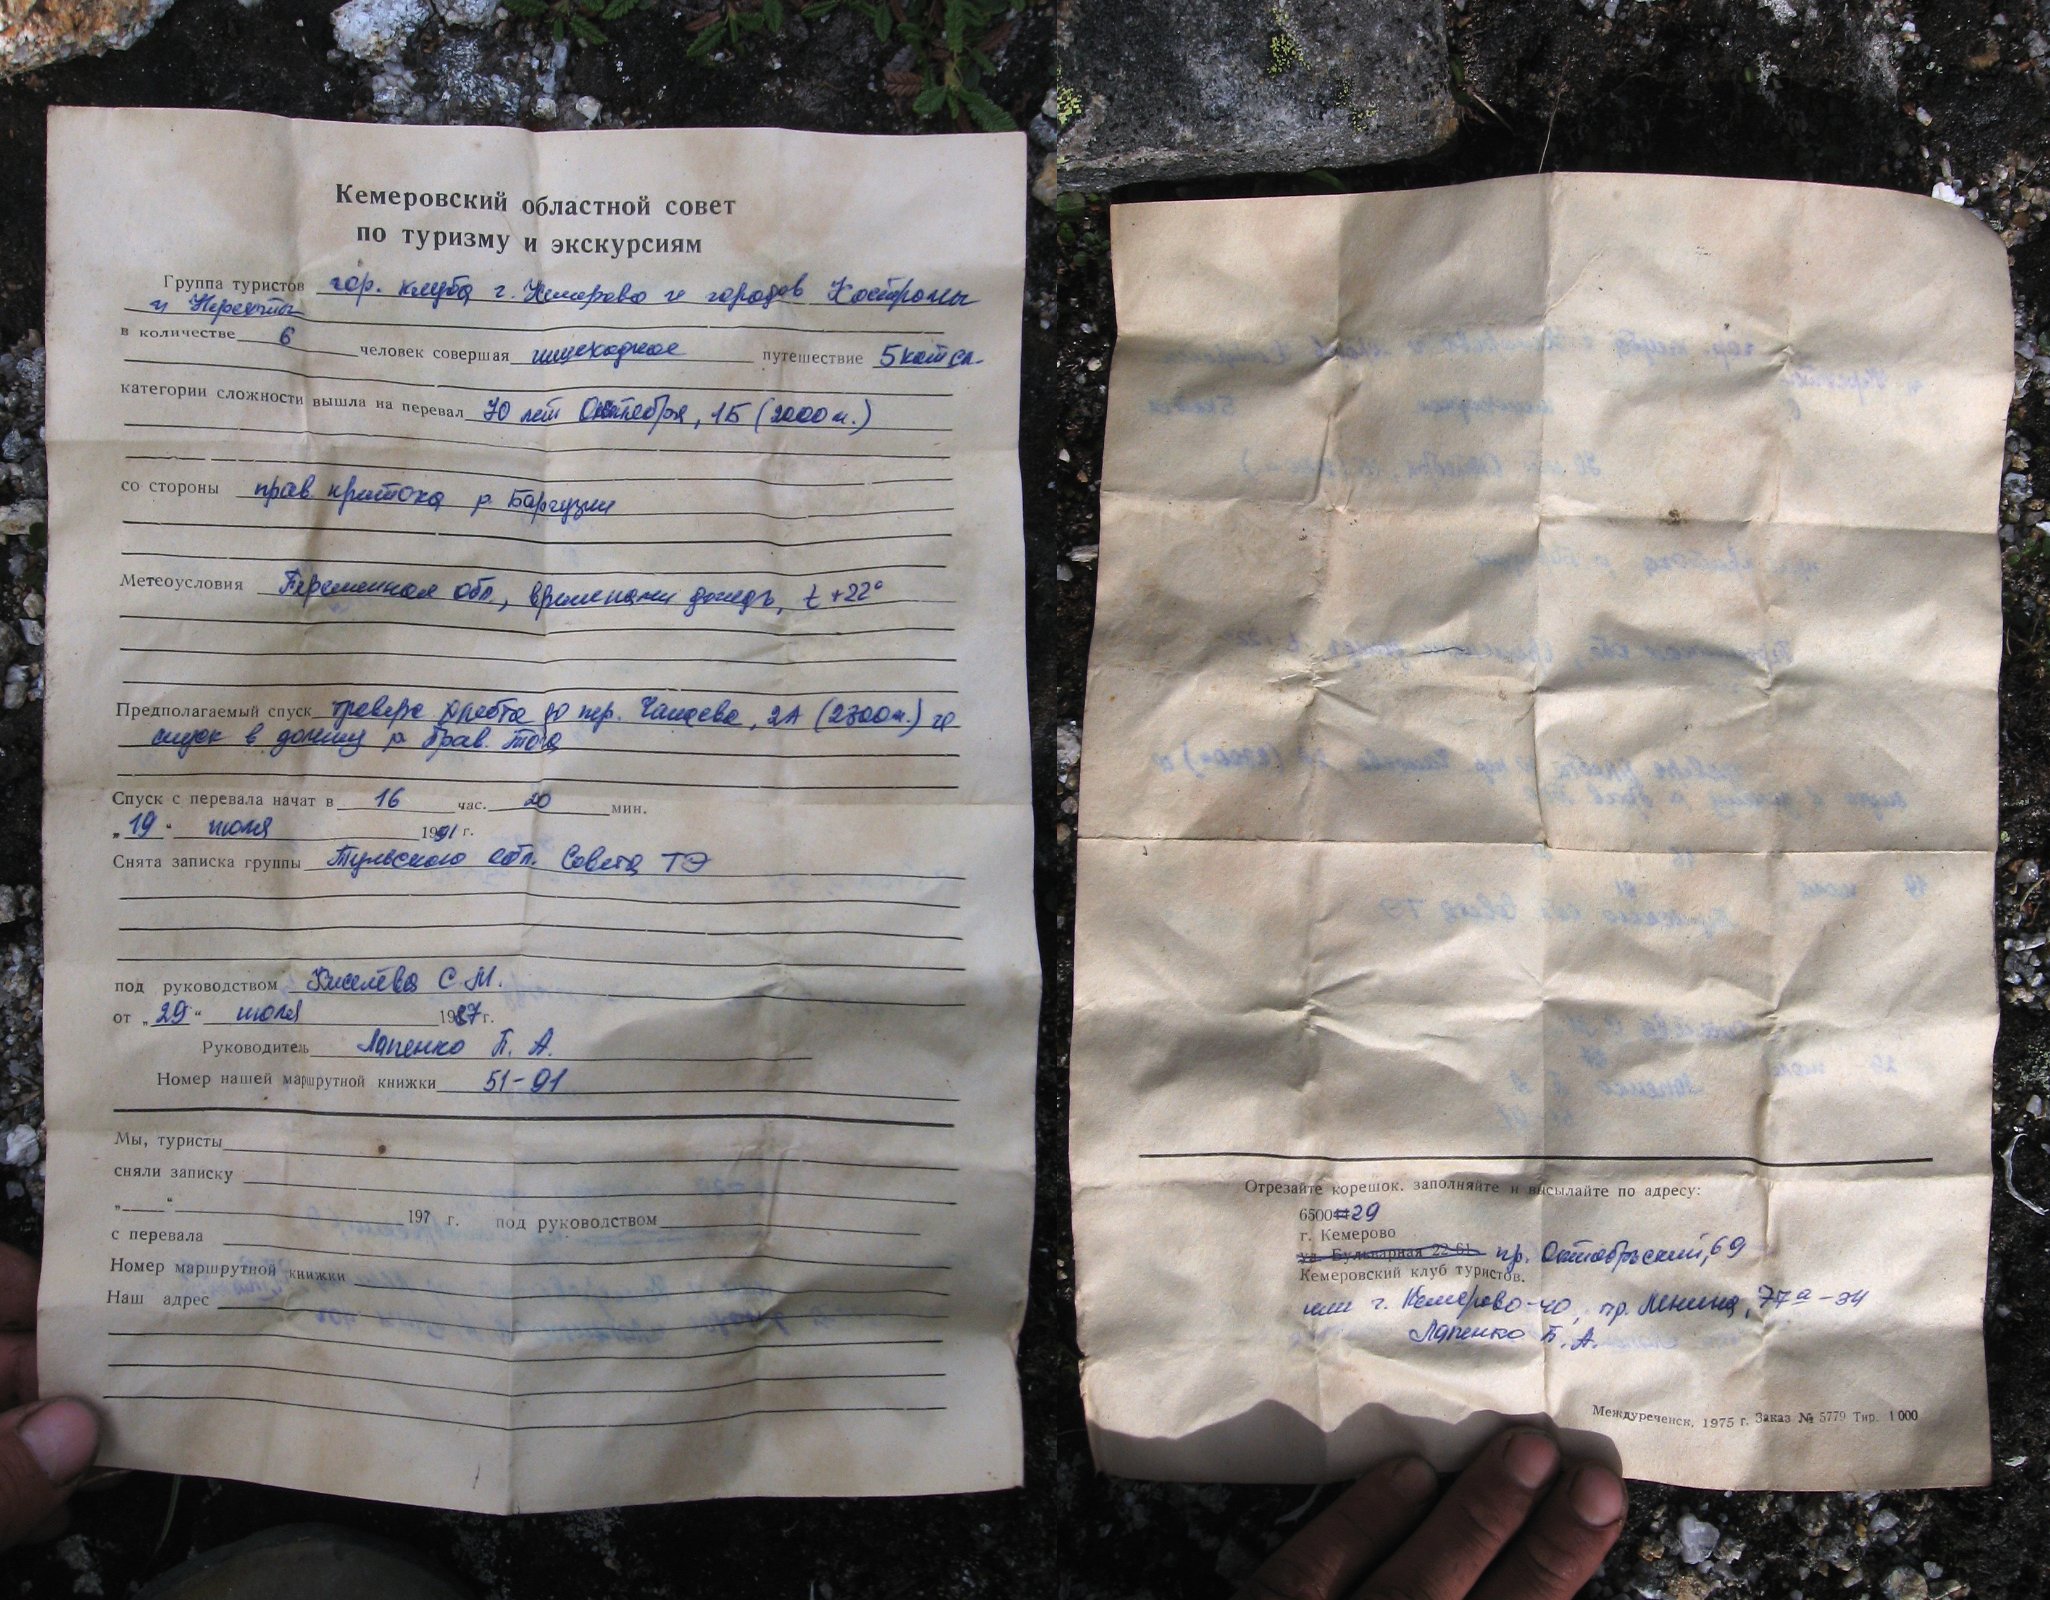 Кемеровский областной совет
по туризму и экскурсиям
Группа туристов гор. клуба г. Кемерово и городов Костромы
и Нерехты
в количестве 6 человек совершая пешеходное путешествие 5 кат сл.
категории сложности вышла на перевал 70 лет Октября, 1Б (2000 м.)
со стороны прав притока р Баргузин
Метеоусловия Переменная обл, временами дождь, t +22°
Предполагаемый спуск траверс хребта до пер. Чапаева, 2А (2300 м.) и
спуск в долину р прав.
Спуск с перевала начат в 16 час. 20 мин.
„19“ июля 1991 г.
Снята записка группы Тульского обл. Совета ТЭ
под руководством Киселёва С. М.
от „29“ июля 1987 г.
Руководитель Лапенко Б. А.
Номер нашей маршрутной книжки 51-91
Мы, туристы
сняли записку
„ “ 197 г. под руководством
с перевала
Номер маршрутной книжки
Наш адрес
Отрезайте корешок, заполняйте и высылайте по адресу:
650029
г. Кемерово
ул. Бульварная 22-61 пр. Октябрьский, 69
Кемеровский клуб туристов.
или г. Кемерово-40, пр. Ленина, 77а-34
Лапенко Б. А.
Междуреченск, 1975 г. Заказ № 5779 Тир. 1000